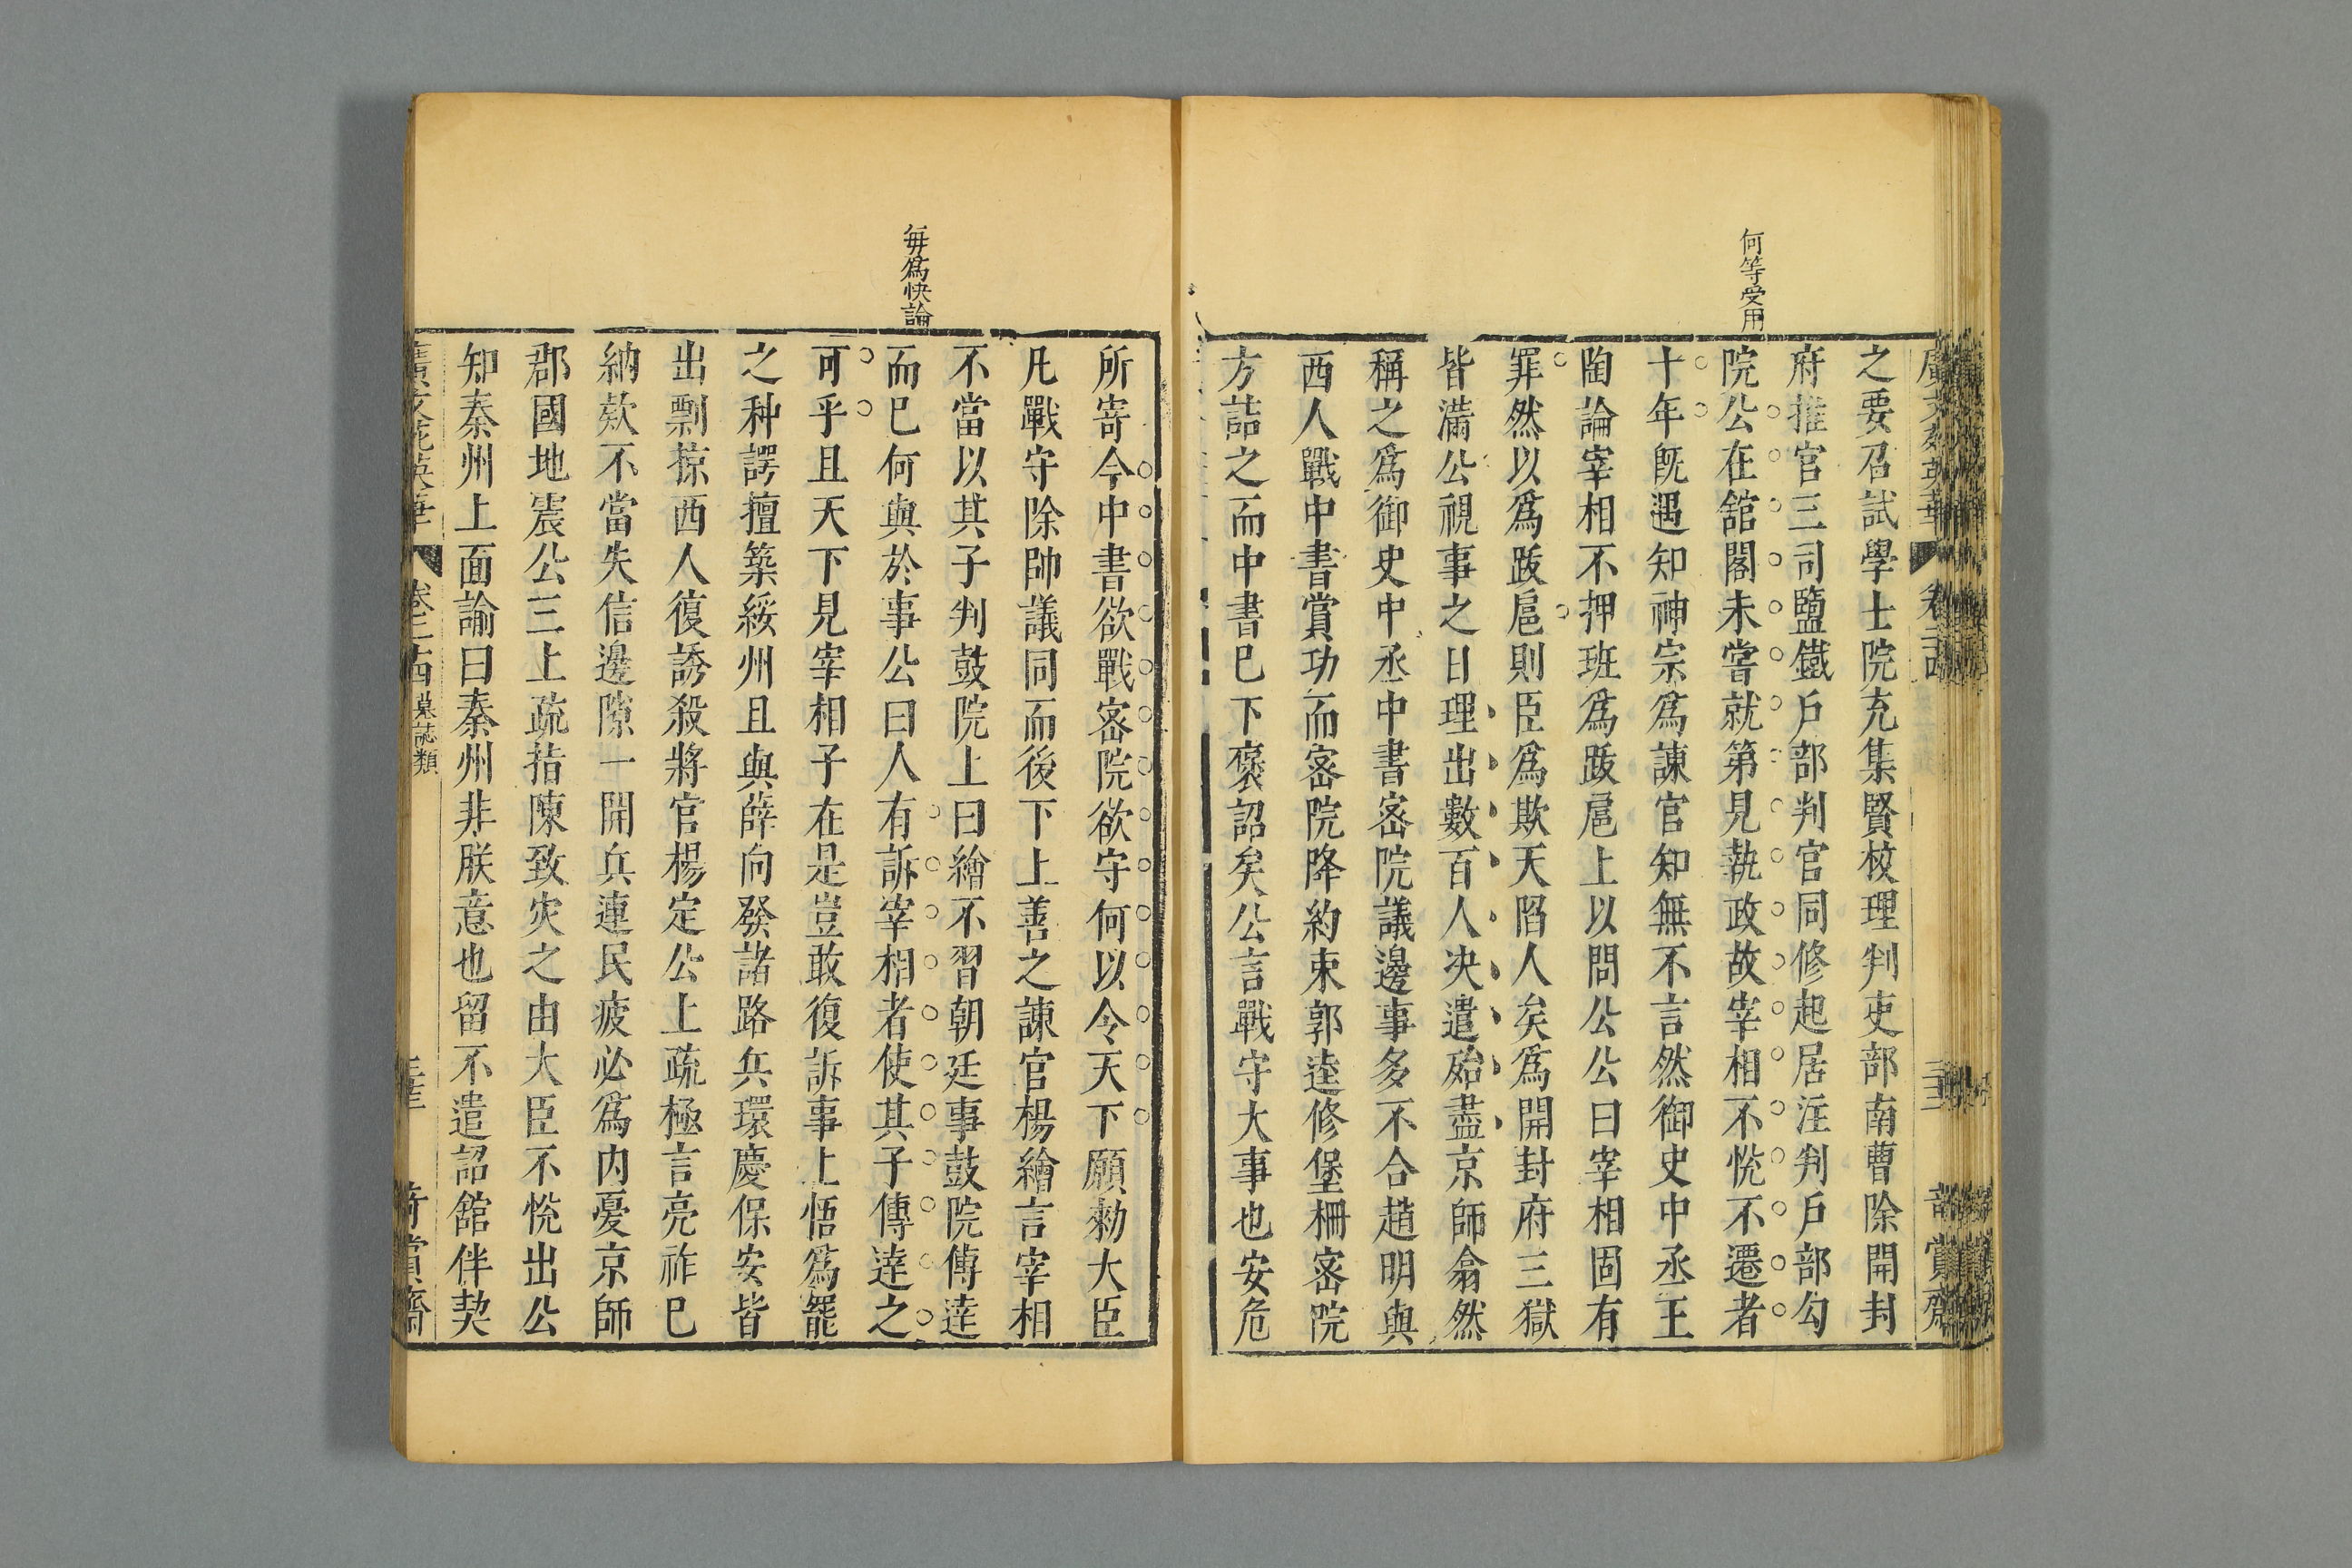 何等受用
之要召試學士院充集賢校理判吏部南曹除開封
府推官三司鹽鐵戶部判官同修起居注判戶部勾
院公在舘閣未嘗就第見執政故宰相不悅不遷者
十年旣遇知神宗爲諫官知無不言然御史中丞王
陶論宰相不押班爲跋扈上以問公公曰宰相固有
罪然以爲跋扈則臣爲欺天陷人矣爲開封府三獄
皆滿公視事之日理出數百人决遣殆盡京師翕然
稱之爲御史中丞中書宻院議邊事多不合趙明與
西人戰中書賞功而宻院降約束郭逵修堡柵宻院
方詰之而中書已下褒詔矣公言戰守大事也安危
每爲快論
所寄今中書欲戰宻院欲守何以令天下願勑大臣
凡戰守除帥議同而後下上善之諫官楊繪言宰相
不當以其子判鼓院上曰繪不習朝廷事鼓院傳逹
而已何與於事公曰人有訴宰相者使其子傳逹之
可乎且天下見宰相子在是豈敢復訴事上悟爲罷
之种諤擅築綏州且與薛向發諸路兵環慶保安皆
出剽掠西人復誘殺將官楊定公上疏極言亮祚已
納欵不當失信邊隙一開兵連民疲必爲内憂京師
郡國地震公三上疏指陳致灾之由大臣不悅出公
知秦州上面諭曰秦州非朕意也留不遣詔舘伴契